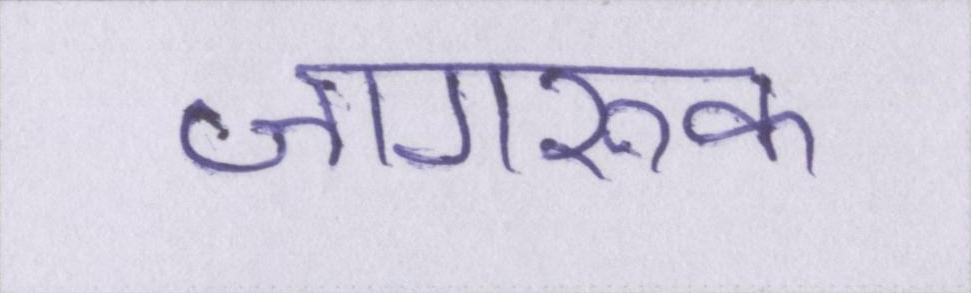 जागरूक